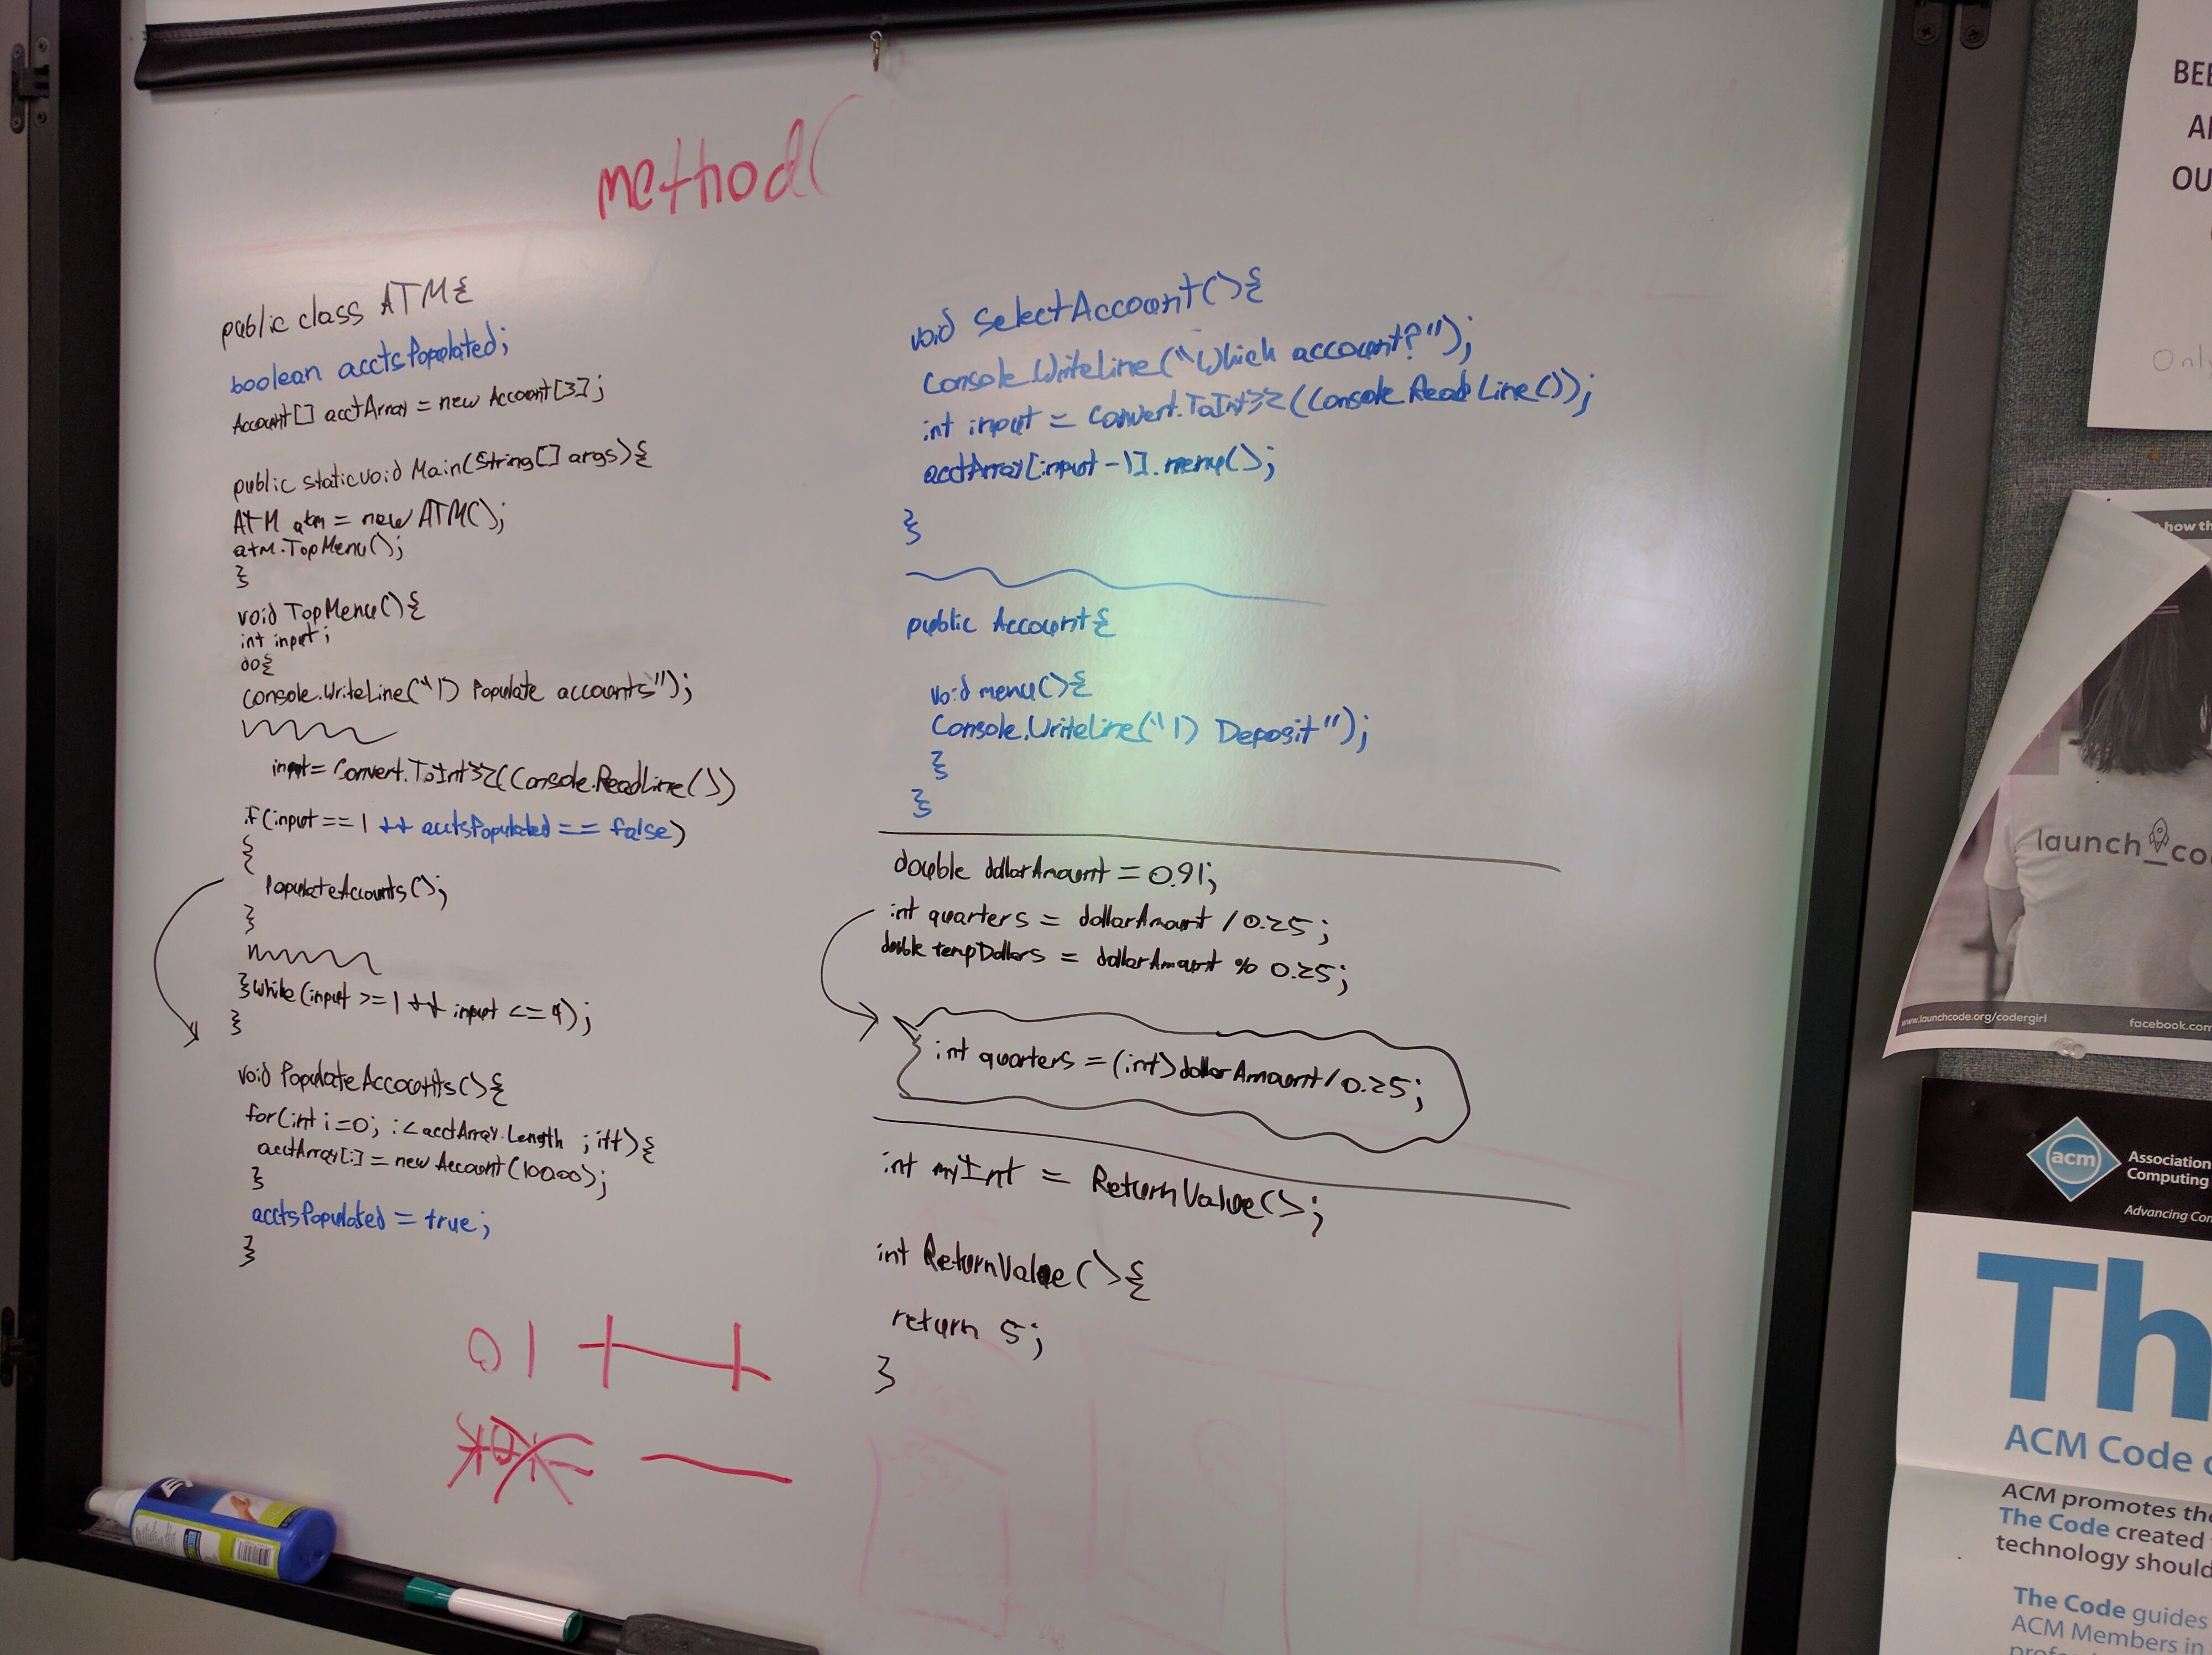 method(
public class ATM{
boolean acctsPopulated;
Account[] acctArray = new Account[3];
public static void Main(String[] args){
ATM atm = new ATM();
atm.TopMenu();
}
void TopMenu(){
int input;
do{
Console.WriteLine("1) Populate accounts");
input = Convert.ToInt32(Console.ReadLine())
if(input == 1 && acctsPopulated == false)
{
PopulateAccounts();
}
}while(input >= 1 && input <= 4);
}
void PopulateAccounts(){
for(int i=0; i < acctArray.Length ; i++){
acctArray[i] = new Account(100.00);
}
acctsPopulated = true;
}
01
void SelectAccount(){
Console.WriteLine("Which account?");
int input = Convert.ToInt32(Console.ReadLine());
acctArray[input-1].menu();
}
public Account{
void menu(){
Console.WriteLine("1) Deposit");
}
}
double dollarAmount = 0.91;
int quarters = dollarAmount / 0.25;
double tempDollars = dollarAmount % 0.25;
int quarters = (int)dollarAmount / 0.25;
int myInt = ReturnValue();
int ReturnValue(){
return 5;
}
OU
Only
how th
launch_co
www.launchcode.org/codergirl
facebook.com
acm
Association
Computing
Advancing Com
Th
ACM Code
ACM promotes the
The Code created
technology should
The Code guides
ACM Members in